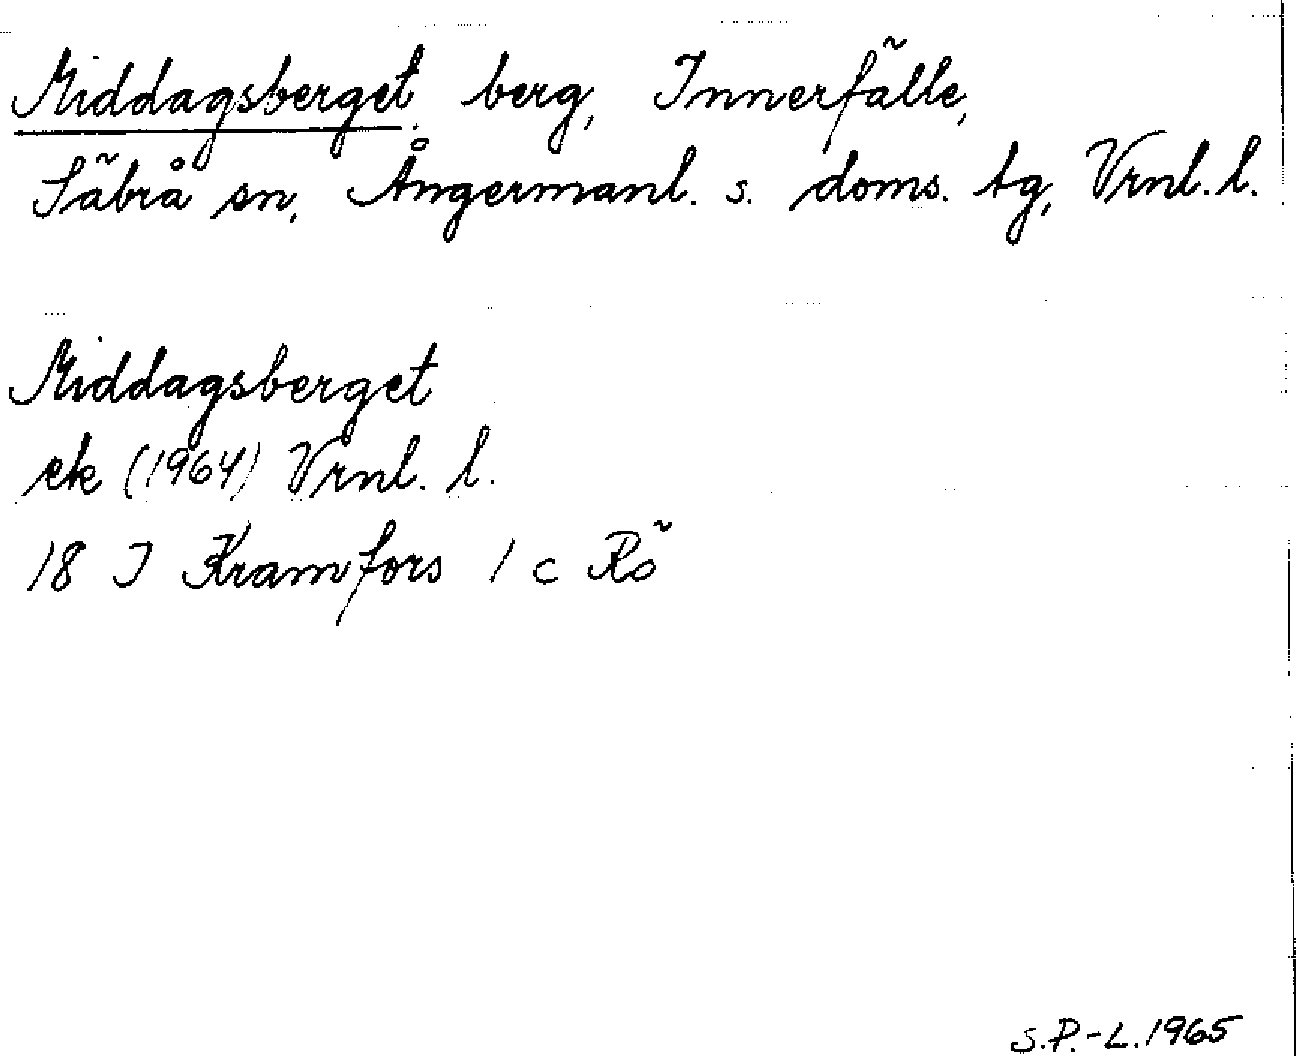 Middagsberget berg, Innerfälle,
Säbrå sn, Ångermanl. s. doms. tg, Vrnl. l.
Middagsberget
ek (1964) Vrnl. l.
18 I Kramfors 1 c Rö
S.P.-L. 1965